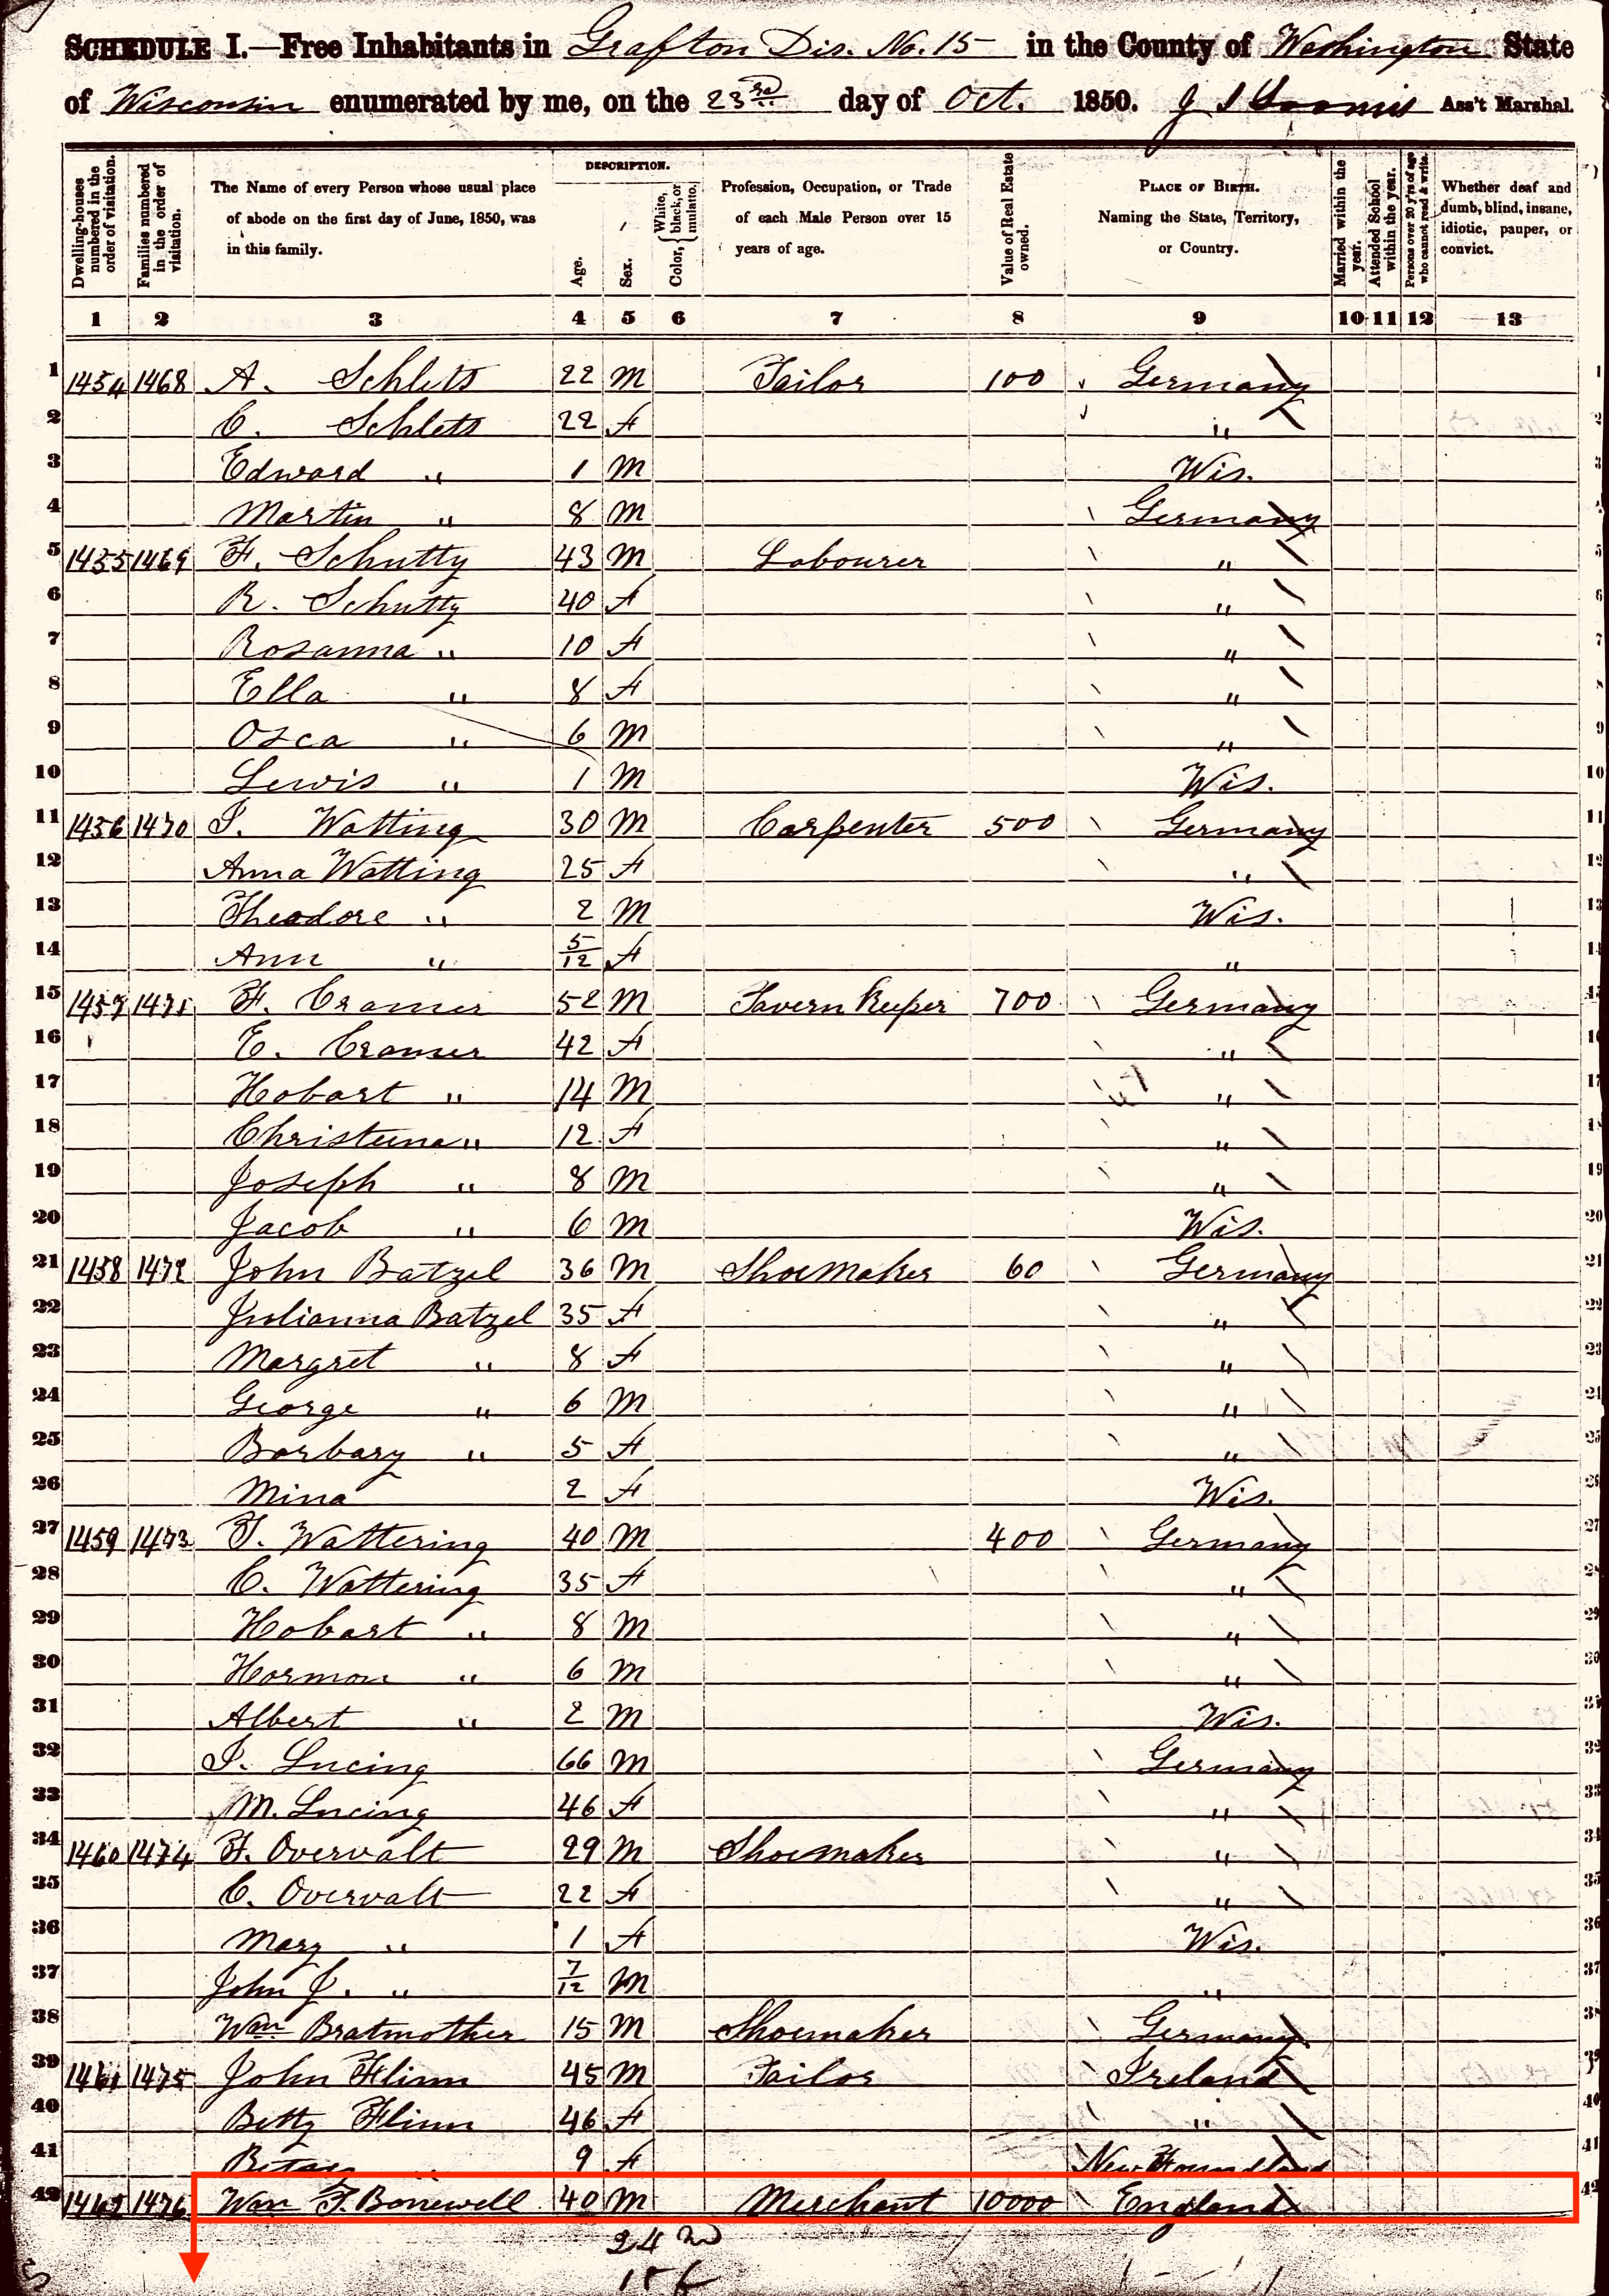 SCHEDULE I.—Free Inhabitants in Grafton Dis. No. 15 in the County of Washington State
of Wisconsin enumerated by me, on the 23rd day of Oct. 1850. J S Loomis Ass't Marshal.
Dwelling-houses numbered in the order of visitation.
Families numbered in the order of visitation.
The Name of every Person whose usual place of abode on the first day of June, 1850, was in this family.
DESCRIPTION.
Age.
Sex.
Color, { White, black, or mulatto.
Profession, Occupation, or Trade of each Male Person over 15 years of age.
Value of Real Estate owned.
PLACE OF BIRTH. Naming the State, Territory, or Country.
Married within the year.
Attended School within the year.
Persons over 20 y'rs of age who cannot read & write.
Whether deaf and dumb, blind, insane, idiotic, pauper, or convict.
1 2 3 4 5 6 7 8 9 10 11 12 13
1 1454 1468 A. Schlets 22 M Tailor 100 Germany 1
2 C. Schlets 22 F " 2
3 Edward " 1 M Wis. 3
4 Martin " 8 M Germany
5 1455 1469 F. Schutty 43 M Labourer " 5
6 R. Schutty 40 F " 6
7 Rosanna " 10 F " 7
8 Ella " 8 F "
9 Osca " 6 M " 9
10 Lewis " 1 M Wis. 10
11 1456 1470 I. Watting 30 M Carpenter 500 Germany 11
12 Anna Watting 25 F " 12
13 Theodore " 2 M Wis. 13
14 Ann " 5/12 F " 14
15 1457 1471 F. Cramer 52 M Tavern Keeper 700 Germany 15
16 E. Cramer 42 F " 16
17 Hobart " 14 M " 17
18 Christeena " 12 F " 18
19 Joseph " 8 M " 19
20 Jacob " 6 M Wis. 20
21 1458 1472 John Batzel 36 M Shoemaker 60 Germany 21
22 Julianna Batzel 35 F " 22
23 Margret " 8 F " 23
24 George " 6 M " 24
25 Barbary " 5 F " 25
26 Mina 2 F Wis. 26
27 1459 1473 T. Wattering 40 M 400 Germany 27
28 C. Wattering 35 F " 28
29 Hobart " 8 M " 29
30 Harmon " 6 M " 30
31 Albert " 2 M Wis. 31
32 I. Lucing 66 M Germany 32
33 M. Lucing 46 F " 33
34 1460 1474 F. Overvalt 29 M Shoemaker " 34
35 C. Overvalt 22 F " 35
36 Mary " 1 F Wis. 36
37 John J. " 7/12 M " 37
38 Wm Bratmother 15 M Shoemaker Germany 38
39 1461 1475 John Flinn 45 M Tailor Ireland 39
40 Betty Flinn 46 F " 40
41 Betsey " 9 F New Foundland 41
42 1462 1476 Wm T. Bonewell 40 M Merchant 10000 England 42
24